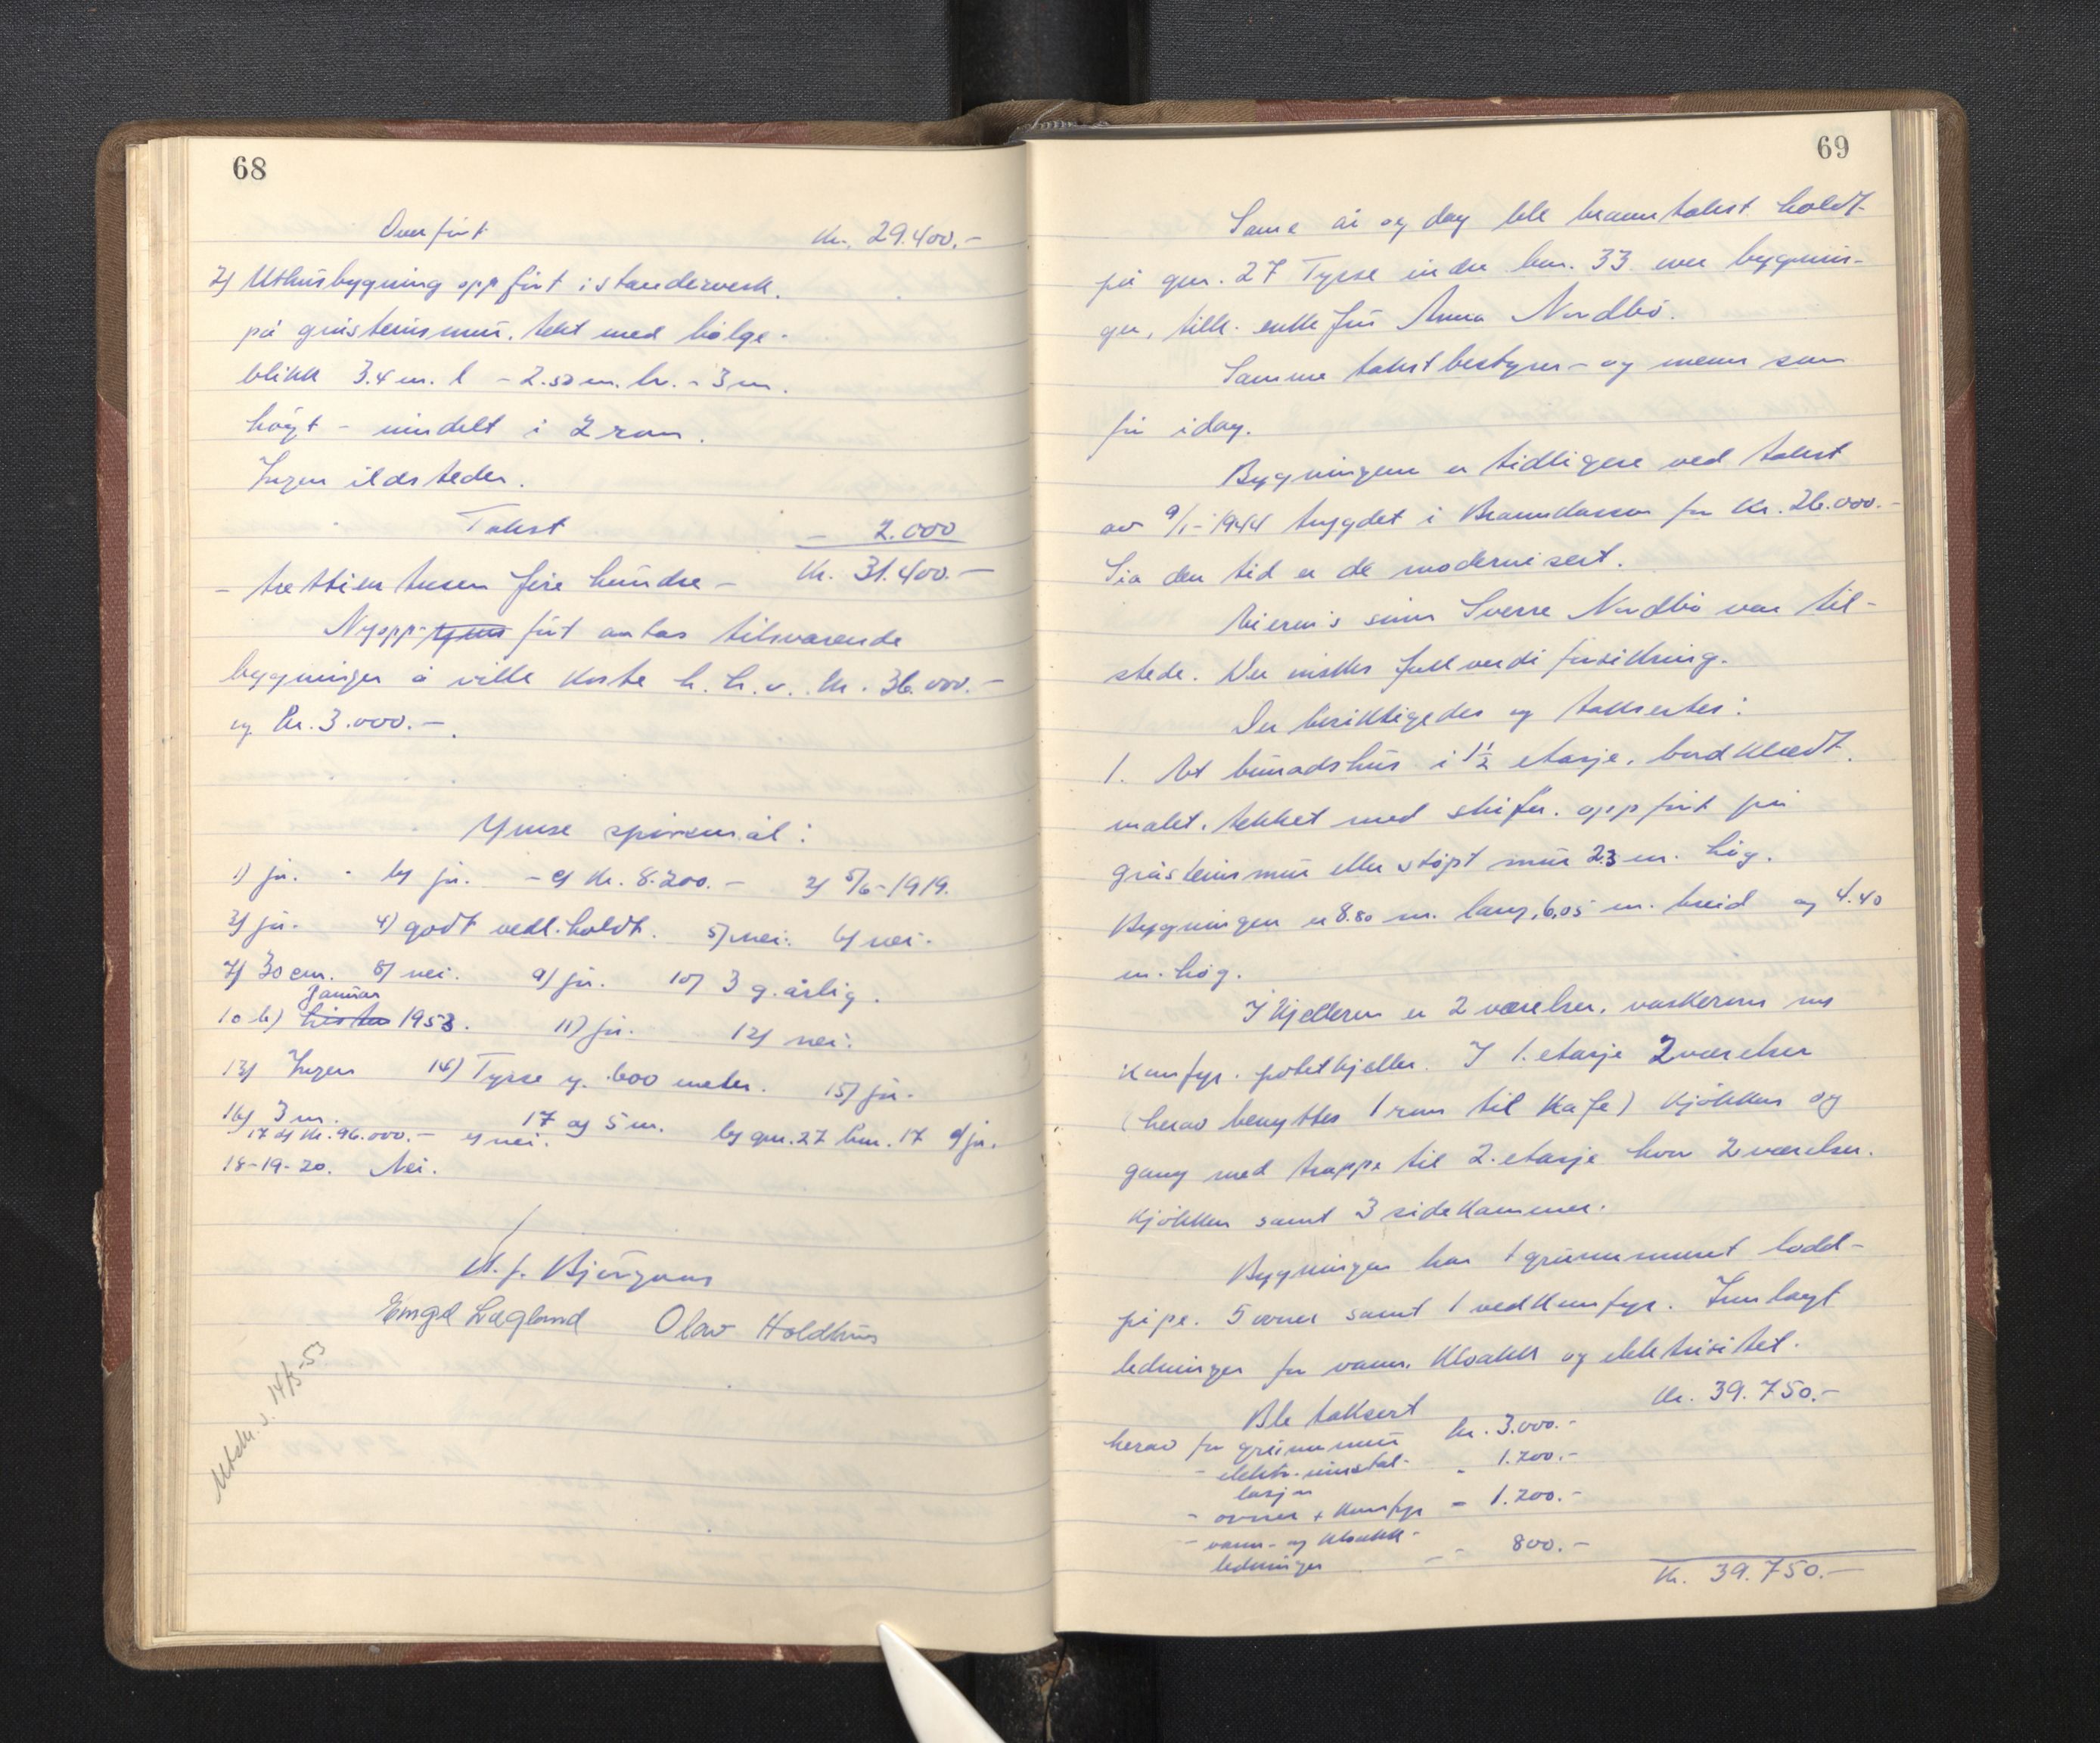 68
Overført Kr. 29.400.-
2) Uthusbygning oppført i standerverk.
på gråsteinsmur. tekt med bølge-
blikk 3.4 m. l - 2.50 m. br. - 3 m.
høgt - inndelt i 2 rom.
Ingen ildsteder.
Takst - 2.000
Kr. 31.400.-
- trettien tusen fire hundre -
Nyopp- ført antas tilsvarende
bygninger å ville koste h.h.v. kr. 36.000.-
og kr. 3.000.-.
Ymse spørsmål:
1) ja. - b) ja. - c) Kr. 8.200.- 2) 5/6-1919.
3) ja. 4) godt vedl.holdt. 5) nei. 6) nei.
7) 30 cm. 8) nei. 9) ja. 10) 3 g. årlig.
Januar
10 b) 1953. 11) ja. 12) nei.
13) Ingen 14) Tysse g. 600 meter. 15) ja.
16) 3 m. 17 a) 5 m. b) gnr. 27 bnr. 17 c) ja.
17 d) Kr. 96.000.- e) nei.
18-19-20. Nei.
Engel Lægland Olav Holdhus
Utskr. s. 14/5-53
69
Same år og dag ble branntakst holdt
på gnr. 27 Tysse indre bnr. 33 over bygnin-
ger, tilh. enkefru Anna Nordbø.
Samme takstbestyrer- og menn som
før idag.
Bygningene er tidligere ved takst
av 9/1-1944 trygdet i Brannkassen for Kr. 26.000.-
Sia den tid er de modernisert.
Eierens sønn Sverre Nordbø var til-
stede. Der ønskes fullverdiforsikring.
Der besiktigedes og taksertes:
1. Et bunadshus i 1½ etasje, bordkledt.
malt. tekket med skifer. oppført på
gråsteinsmur eller støpt mur 2.3 m. høg.
Bygningen er 8.80 m. lang, 6,05 m. breid og 4.40
m. høg.
I kjelleren er 2 værelser, vaskerom m/
komfyr. potetkjeller. I 1. etasje 2 værelser
(herav benyttes 1 rom til Kafe) kjøkken og
gang med trappe til 2. etasje hvor 2 værelser.
kjøkken samt 3 sidekammer.
Bygningen har 1 grunnmuret lodd-
pipe. 5 ovner samt 1 vedkomfyr. Innlagt
ledninger for vann. Kloakk og elektrisitet.
Ble taksert Kr. 39.750.-
herav for grunnmur kr. 3.000.-
- elektr. instal- - 1.200.-
lasjon
- ovner + komfyr - 1.200.-
- vann- og kloakk-
ledninger - - 800.-
Kr. 39.750.-